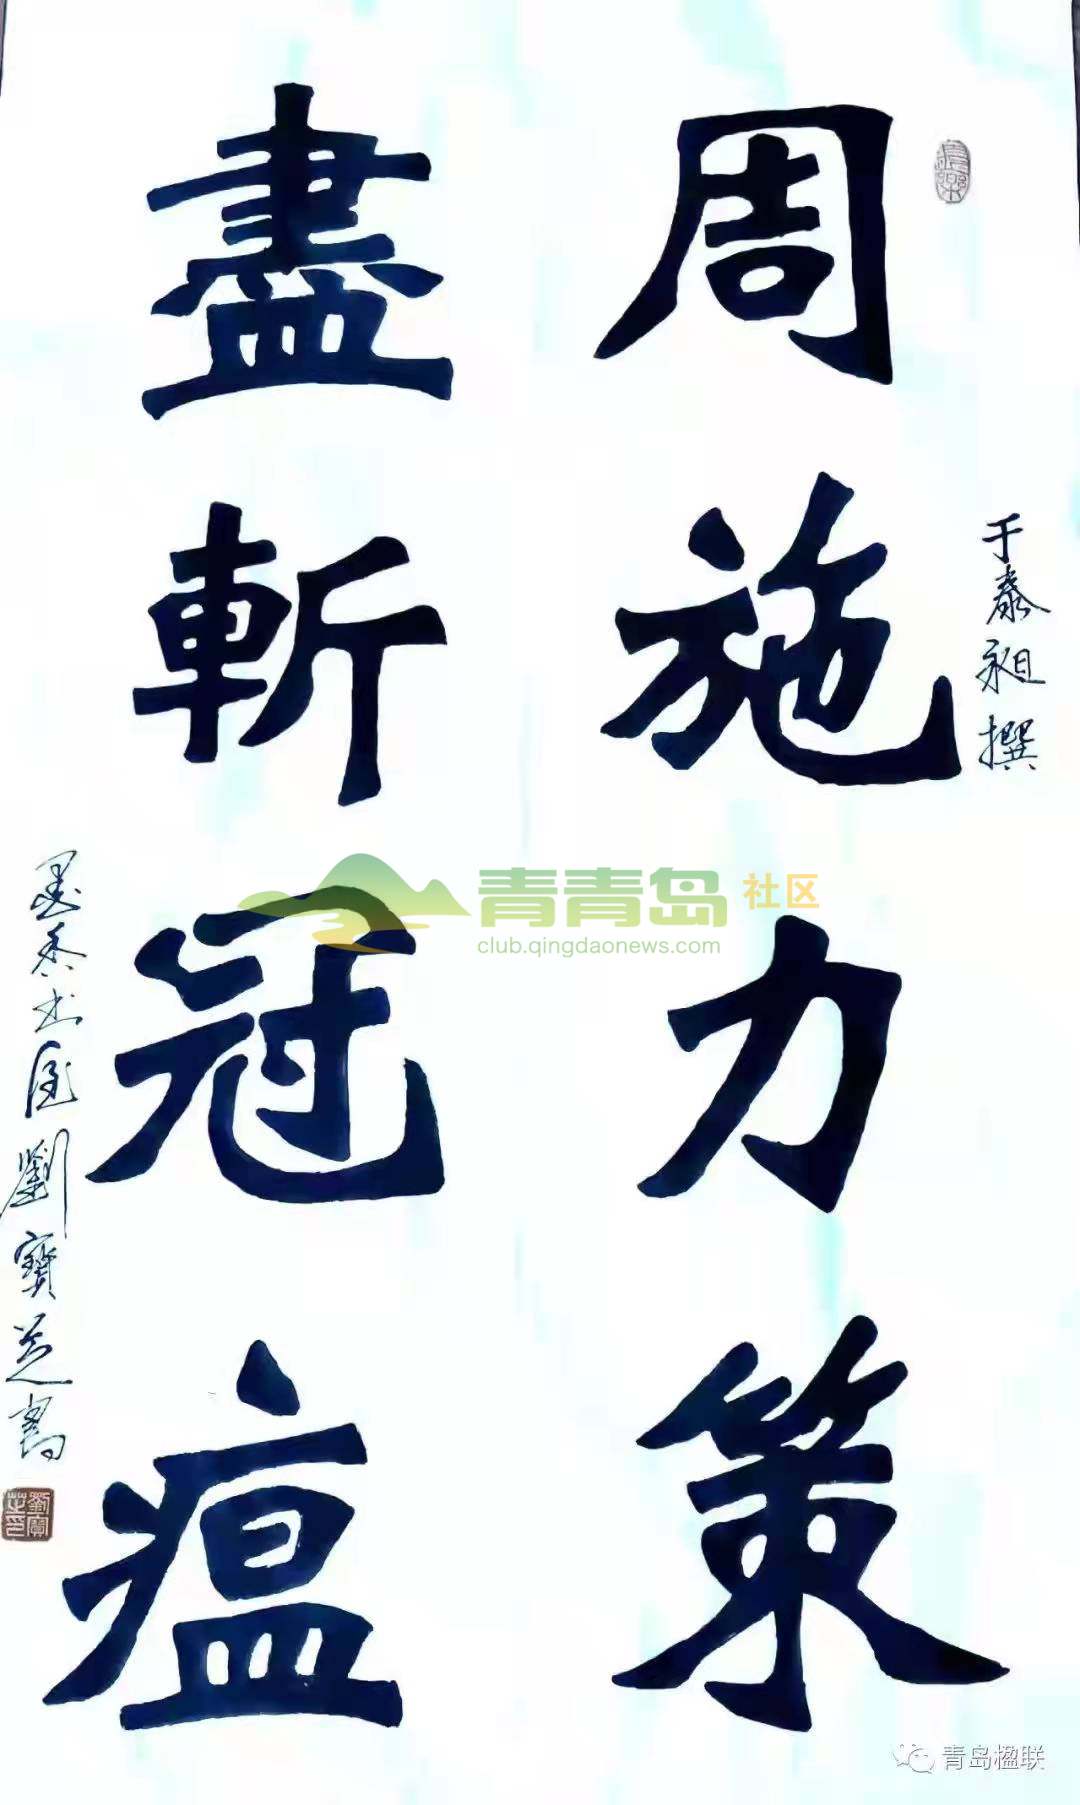 周施力策
盡斬冠瘟
于泰昶撰
墨香书屋劉寶芝書
青青岛社区
club.qingdaonews.com
青岛楹联